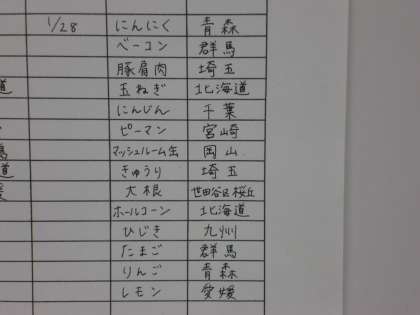 1/28 にんにく 青森
ベーコン 群馬
豚肩肉 埼玉
道 玉ねぎ 北海道
にんじん 千葉
ピーマン 宮崎
マッシュルーム缶 岡山
道 きゅうり 埼玉
大根 世田谷区桜丘
ホールコーン 北海道
ひじき 九州
たまご 群馬
りんご 青森
レモン 愛媛